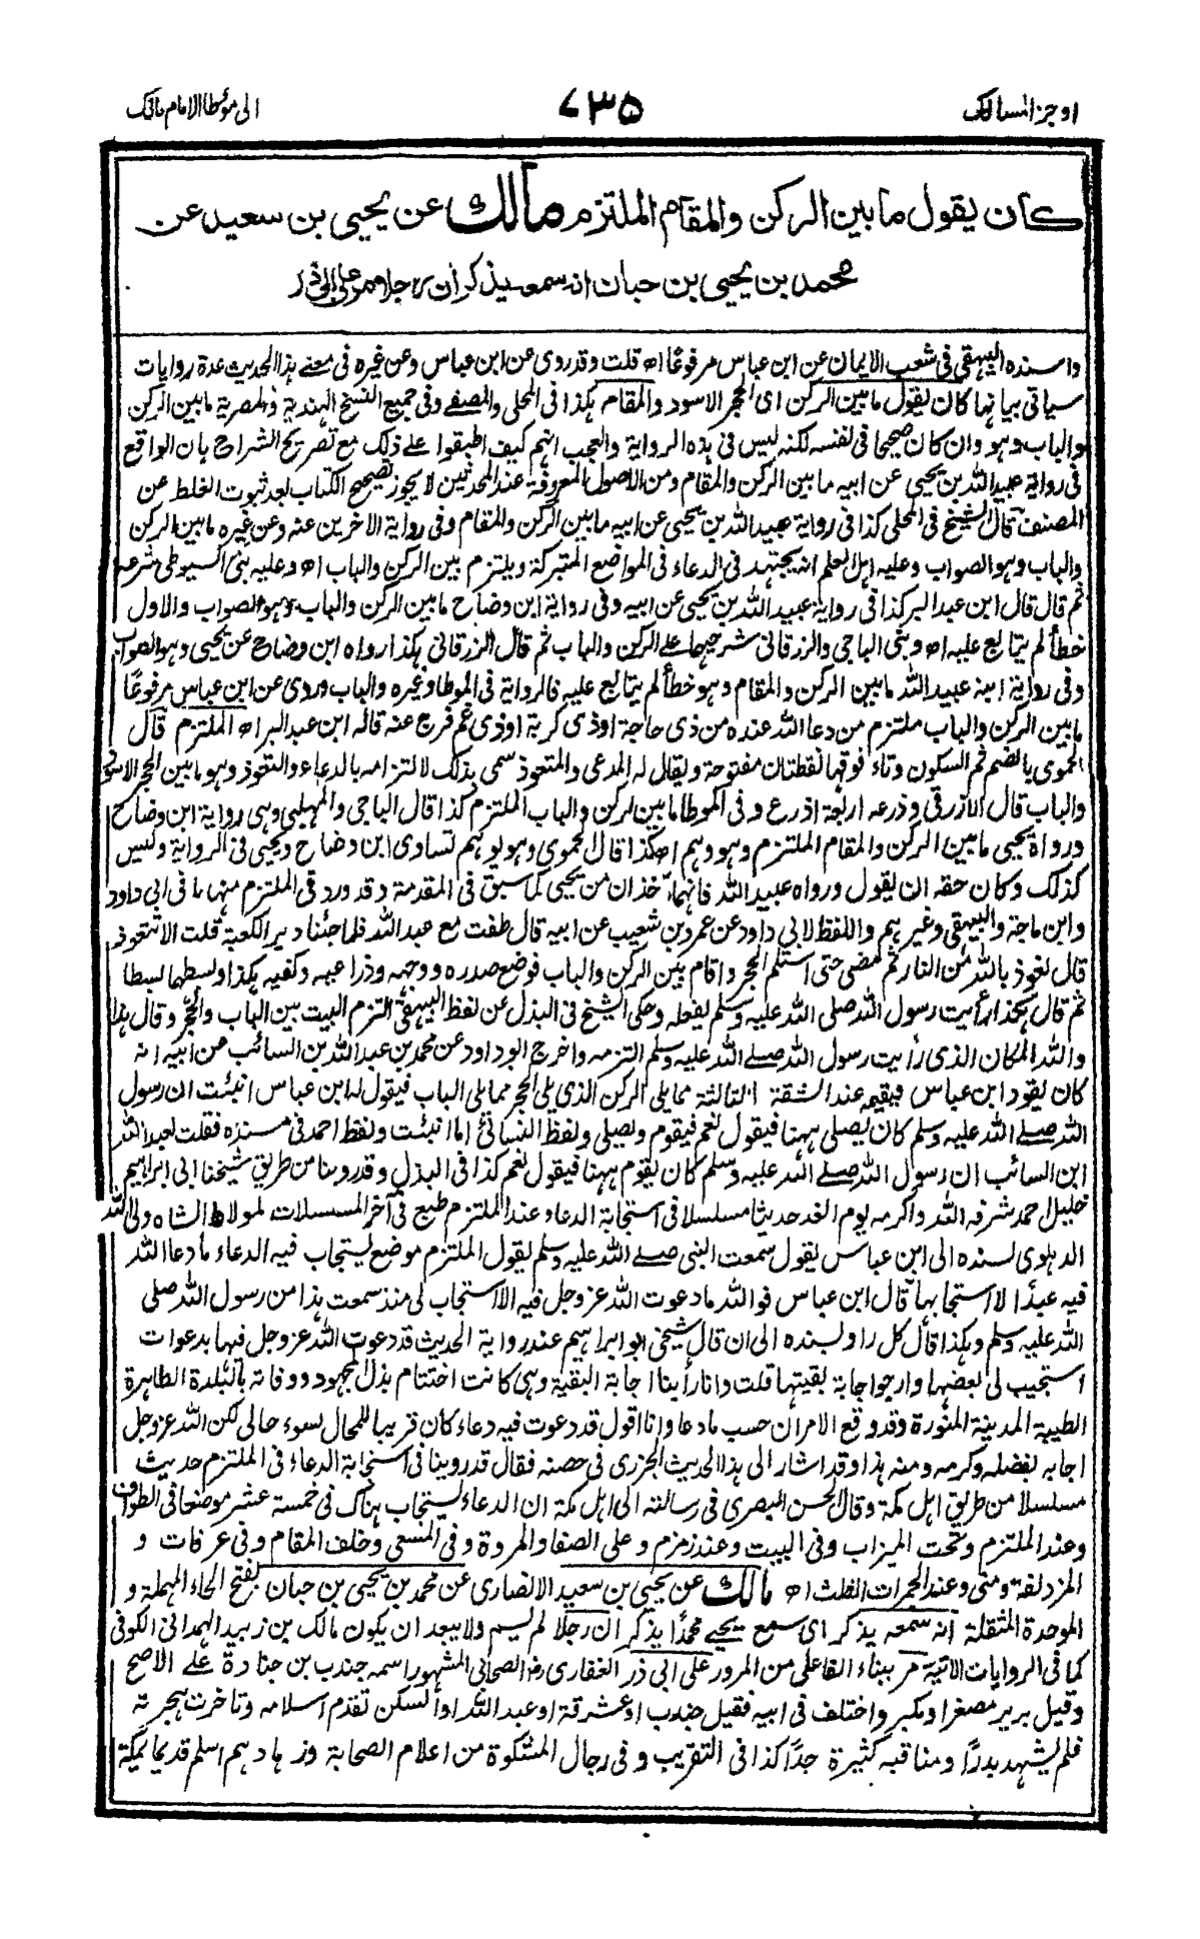 اوجز المسالك
٧٣٥
الى موطا الامام مالك
كان يقول ما بين الركن والمقام الملتزم مالك عن يحيى بن سعيد عن
محمد بن يحيى بن حبان انه سمعه يذكر ان رجلا مر على ابى ذر
واسنده البيهقى فى شعب الايمان عن ابن عباس مرفوعًا اھ قلت وقد روى عن ابن عباس وعن غيره فى معنے هذا الحديث عدة روايات
سياتى بيانها كان يقول ما بين الركن اى الحجر الاسود والمقام هكذا فى المحلى والمصفے وفى جميع النسخ الهندية والمصرية ما بين الركن
والباب وهو وان كان صحيحا فى نفسه لكنه ليس فى هذه الرواية والعجب انهم كيف اطبقوا علے ذلك مع تصريح الشراح بان الواقع
فى رواية عبيد الله بن يحيى عن ابيه ما بين الركن والمقام ومن الاصول المعروفة عند المحدثين لا يجوز تصحيح الكتاب بعد ثبوت الغلط عن
المصنف قال الشيخ فى المحلى كذا فى رواية عبيد الله بن يحيى عن ابيه ما بين الركن والمقام وفى رواية الاخرين عنه وعن غيره ما بين الركن
والباب وهو الصواب وعليه اهل العلم انه يجتهد فى الدعاء فى المواضع المتبركة ويلتزم بين الركن والباب اھ وعليه بنى السيوطى شرحه
ثم قال قال ابن عبد البر كذا فى رواية عبيد الله بن يحيى عن ابيه وفى رواية ابن وضاح ما بين الركن والباب وهو الصواب والاول
خطأ لم يتابع عليه اھ وبنى الباجى والزرقانى شرحيهما علے الركن والباب ثم قال الزرقانى هكذا رواه ابن وضاح عن يحيى وهو الصواب
وفى رواية ابنه عبيد الله ما بين الركن والمقام وهو خطأ لم يتابع عليه فالرواية فى الموطا وغيره والباب وروى عن ابن عباس مرفوعًا
ما بين الركن والباب ملتزم من دعا الله عنده من ذى حاجة او ذى كربة او ذى غم فرج عنه قاله ابن عبد البر اھ الملتزم قال
الحموى بالضم ثم السكون وتاء فوقها نقطتان مفتوحة ويقال له المدعى والمتعوذ سمى بذلك لالتزامه بالدعاء والتعوذ وهو ما بين الحجر الاسود
والباب قال الازرقى وذرعه اربعة اذرع وفى الموطا ما بين الركن والباب الملتزم كذا قال الباجى والمهلبى وهى رواية ابن وضاح
ورواه يحيى ما بين الركن والمقام الملتزم وهو وهم اھ هكذا قال الحموى وهو يوهم تساوى ابن وضاح ويحيى فى الرواية وليس
كذلك وكان حقه ان يقول ورواه عبيد الله فانهما آخذان من يحيى كما سبق فى المقدمة وقد ورد فى الملتزم منها ما فى ابى داود
وابن ماجة والبيهقى وغيرهم واللفظ لابى داود عن عمرو بن شعيب عن ابيه قال طفت مع عبد الله فلما جئنا دبر الكعبة قلت الا تتعوذ
قال نعوذ بالله من النار ثم مضى حتى استلم الحجر واقام بين الركن والباب فوضع صدره ووجهه وذراعيه وكفيه هكذا وبسطهما بسطا
ثم قال هكذا رأيت رسول الله صلى الله عليه وسلم يفعله وحكى الشيخ فى البذل عن لفظ البيهقى التزم البيت بين الباب والحجر وقال هذا
والله المكان الذى رأيت رسول الله صلے الله عليه وسلم التزمه واخرج ابو داود عن محمد بن عبد الله بن السائب عن ابيه انه
كان يقود ابن عباس فيقيمه عند الشقة الثالثة مما يلى الركن الذى يلى الحجر مما يلى الباب فيقول له ابن عباس انبئت ان رسول
الله صلے الله عليه وسلم كان يصلى ههنا فيقول نعم فيقوم ويصلى ولفظ النسائى اما انبئت ولفظ احمد فى مسنده فقلت لعبد الله
ابن السائب ان رسول الله صلے الله عليه وسلم كان يقوم ههنا فيقول نعم كذا فى البذل وقد روينا من طريق شيخنا ابى ابراهيم
خليل احمد شرفه الله واكرمه يوم الغد حديثا مسلسلا فى استجابة الدعاء عند الملتزم طبع فى آخر المسلسلات لمولانا الشاه ولى الله
الدهلوى بسنده الى ابن عباس يقول سمعت النبى صلے الله عليه وسلم يقول الملتزم موضع يستجاب فيه الدعاء ما دعا الله
فيه عبدٌ الا استجابها قال ابن عباس فو الله ما دعوت الله عز وجل فيه الا استجاب لى منذ سمعت هذا من رسول الله صلى
الله عليه وسلم وهكذا قال كل راو بسنده الى ان قال شيخى ابو ابراهيم عند رواية الحديث قد دعوت الله عز وجل فيها بدعوات
استجيب لى بعضها وارجو اجابة بقيتها قلت وانا رأينا اجابة البقية وهى كانت اختتام بذل المجهود ووفاته بالبلدة الطاهرة
الطيبة المدينة المنورة وقد وقع الامران حسب ما دعا وانا اقول قد دعوت فيه دعاء كان قريبا للمحال لسوء حالى لكن الله عز وجل
اجابه بفضله وكرمه ومنه هذا وقد اشار الى هذا الحديث الجزرى فى حصنه فقال قد روينا فى استجابة الدعاء فى الملتزم حديث
مسلسلا من طريق اهل مكة وقال الحسن البصرى فى رسالته الى اهل مكة ان الدعاء يستجاب هناك فى خمسة عشر موضعا فى الطواف
وعند الملتزم وتحت الميزاب وفى البيت وعند زمزم وعلى الصفا والمروة وفى المسعى وخلف المقام وفى عرفات و
المزدلفة ومنى وعند الجمرات الثلث اھ مالك عن يحيى بن سعيد الانصارى عن محمد بن يحيى بن حبان بفتح الحاء المهملة و
الموحدة المثقلة انه سمعه يذكر اى سمع يحيے محمدًا يذكر ان رجلا لم يسم ولا يبعد ان يكون مالك بن زبيد الهمدانى الكوفى
كما فى الروايات الاتية مر ببناء الفاعل من المرور على ابى ذر الغفارى رضـ الصحابى المشهور اسمه جندب بن جنادة علے الاصح
وقيل برير مصغرا ومكبر واختلف فى ابيه فقيل جندب او عشرقة او عبد الله او السكن تقدم اسلامه وتاخرت هجرته
فلم يشهد بدرًا ومناقبه كثيرة جدًا كذا فى التقريب وفى رجال المشكوة من اعلام الصحابة وزهادهم اسلم قديما بمكة